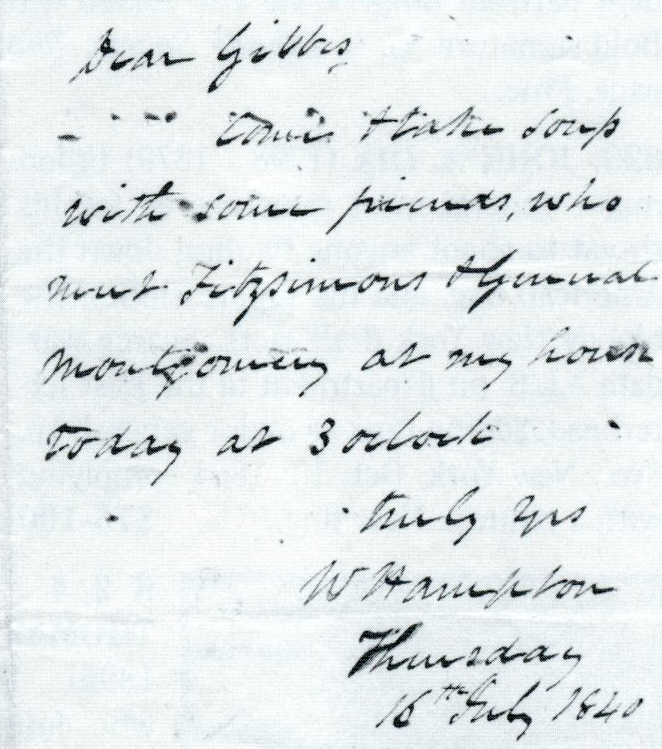 Dear Gibbes,
Come & take soup
with some friends, who
meet Fitzsimons & General
Montgomery at my house
today at 3 oclock
truly yrs
W Hampton
Thursday
16th July 1840